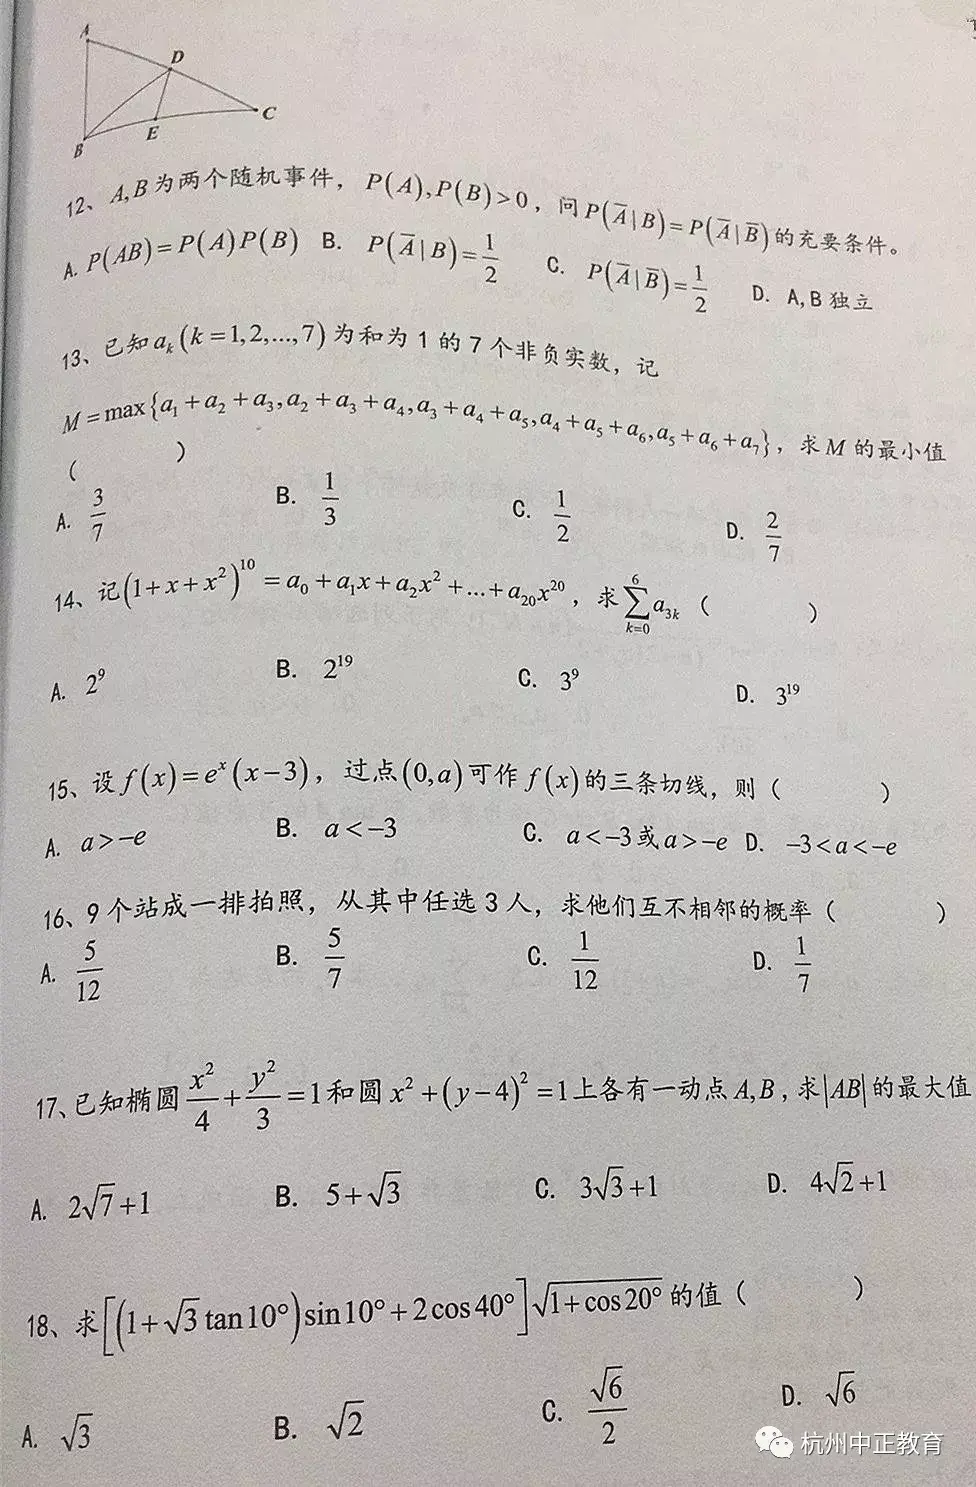 A
D
C
B
E
12、A,B为两个随机事件，P(A),P(B)>0，问P(A̅|B)=P(A̅|B̅)的充要条件。
A. P(AB)=P(A)P(B) B. P(A̅|B)=1/2 C. P(A̅|B̅)=1/2 D. A,B独立
13、已知aₖ(k=1,2,...,7)为和为1的7个非负实数，记
M=max{a₁+a₂+a₃,a₂+a₃+a₄,a₃+a₄+a₅,a₄+a₅+a₆,a₅+a₆+a₇}，求M的最小值
（ ）
A. 3/7 B. 1/3 C. 1/2 D. 2/7
14、记(1+x+x²)¹⁰=a₀+a₁x+a₂x²+...+a₂₀x²⁰，求∑_{k=0}^{6}a_{3k}（ ）
A. 2⁹ B. 2¹⁹ C. 3⁹ D. 3¹⁹
15、设f(x)=eˣ(x-3)，过点(0,a)可作f(x)的三条切线，则（ ）
A. a>-e B. a<-3 C. a<-3或a>-e D. -3<a<-e
16、9个站成一排拍照，从其中任选3人，求他们互不相邻的概率（ ）
A. 5/12 B. 5/7 C. 1/12 D. 1/7
17、已知椭圆x²/4+y²/3=1和圆x²+(y-4)²=1上各有一动点A,B，求|AB|的最大值
A. 2√7+1 B. 5+√3 C. 3√3+1 D. 4√2+1
18、求[(1+√3tan10°)sin10°+2cos40°]√(1+cos20°)的值（ ）
A. √3 B. √2 C. √6/2 D. √6
杭州中正教育